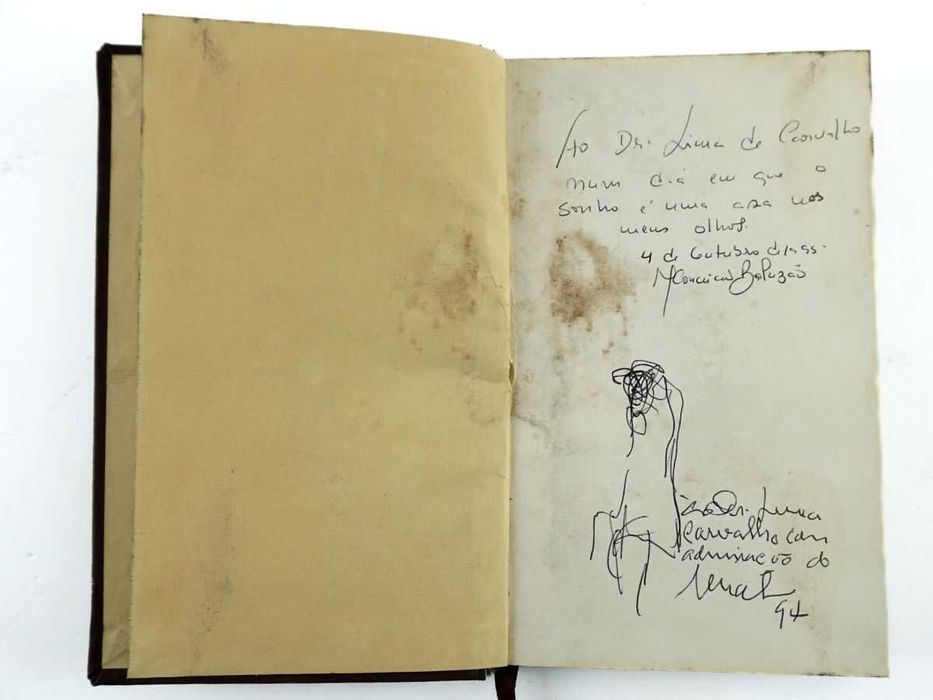 Ao Dr. Lima de Carvalho
num dia em que o
sonho é uma asa nos
meus olhos.
4 de Outubro de
Ao Dr. Lima
Carvalho com
admiração do
94